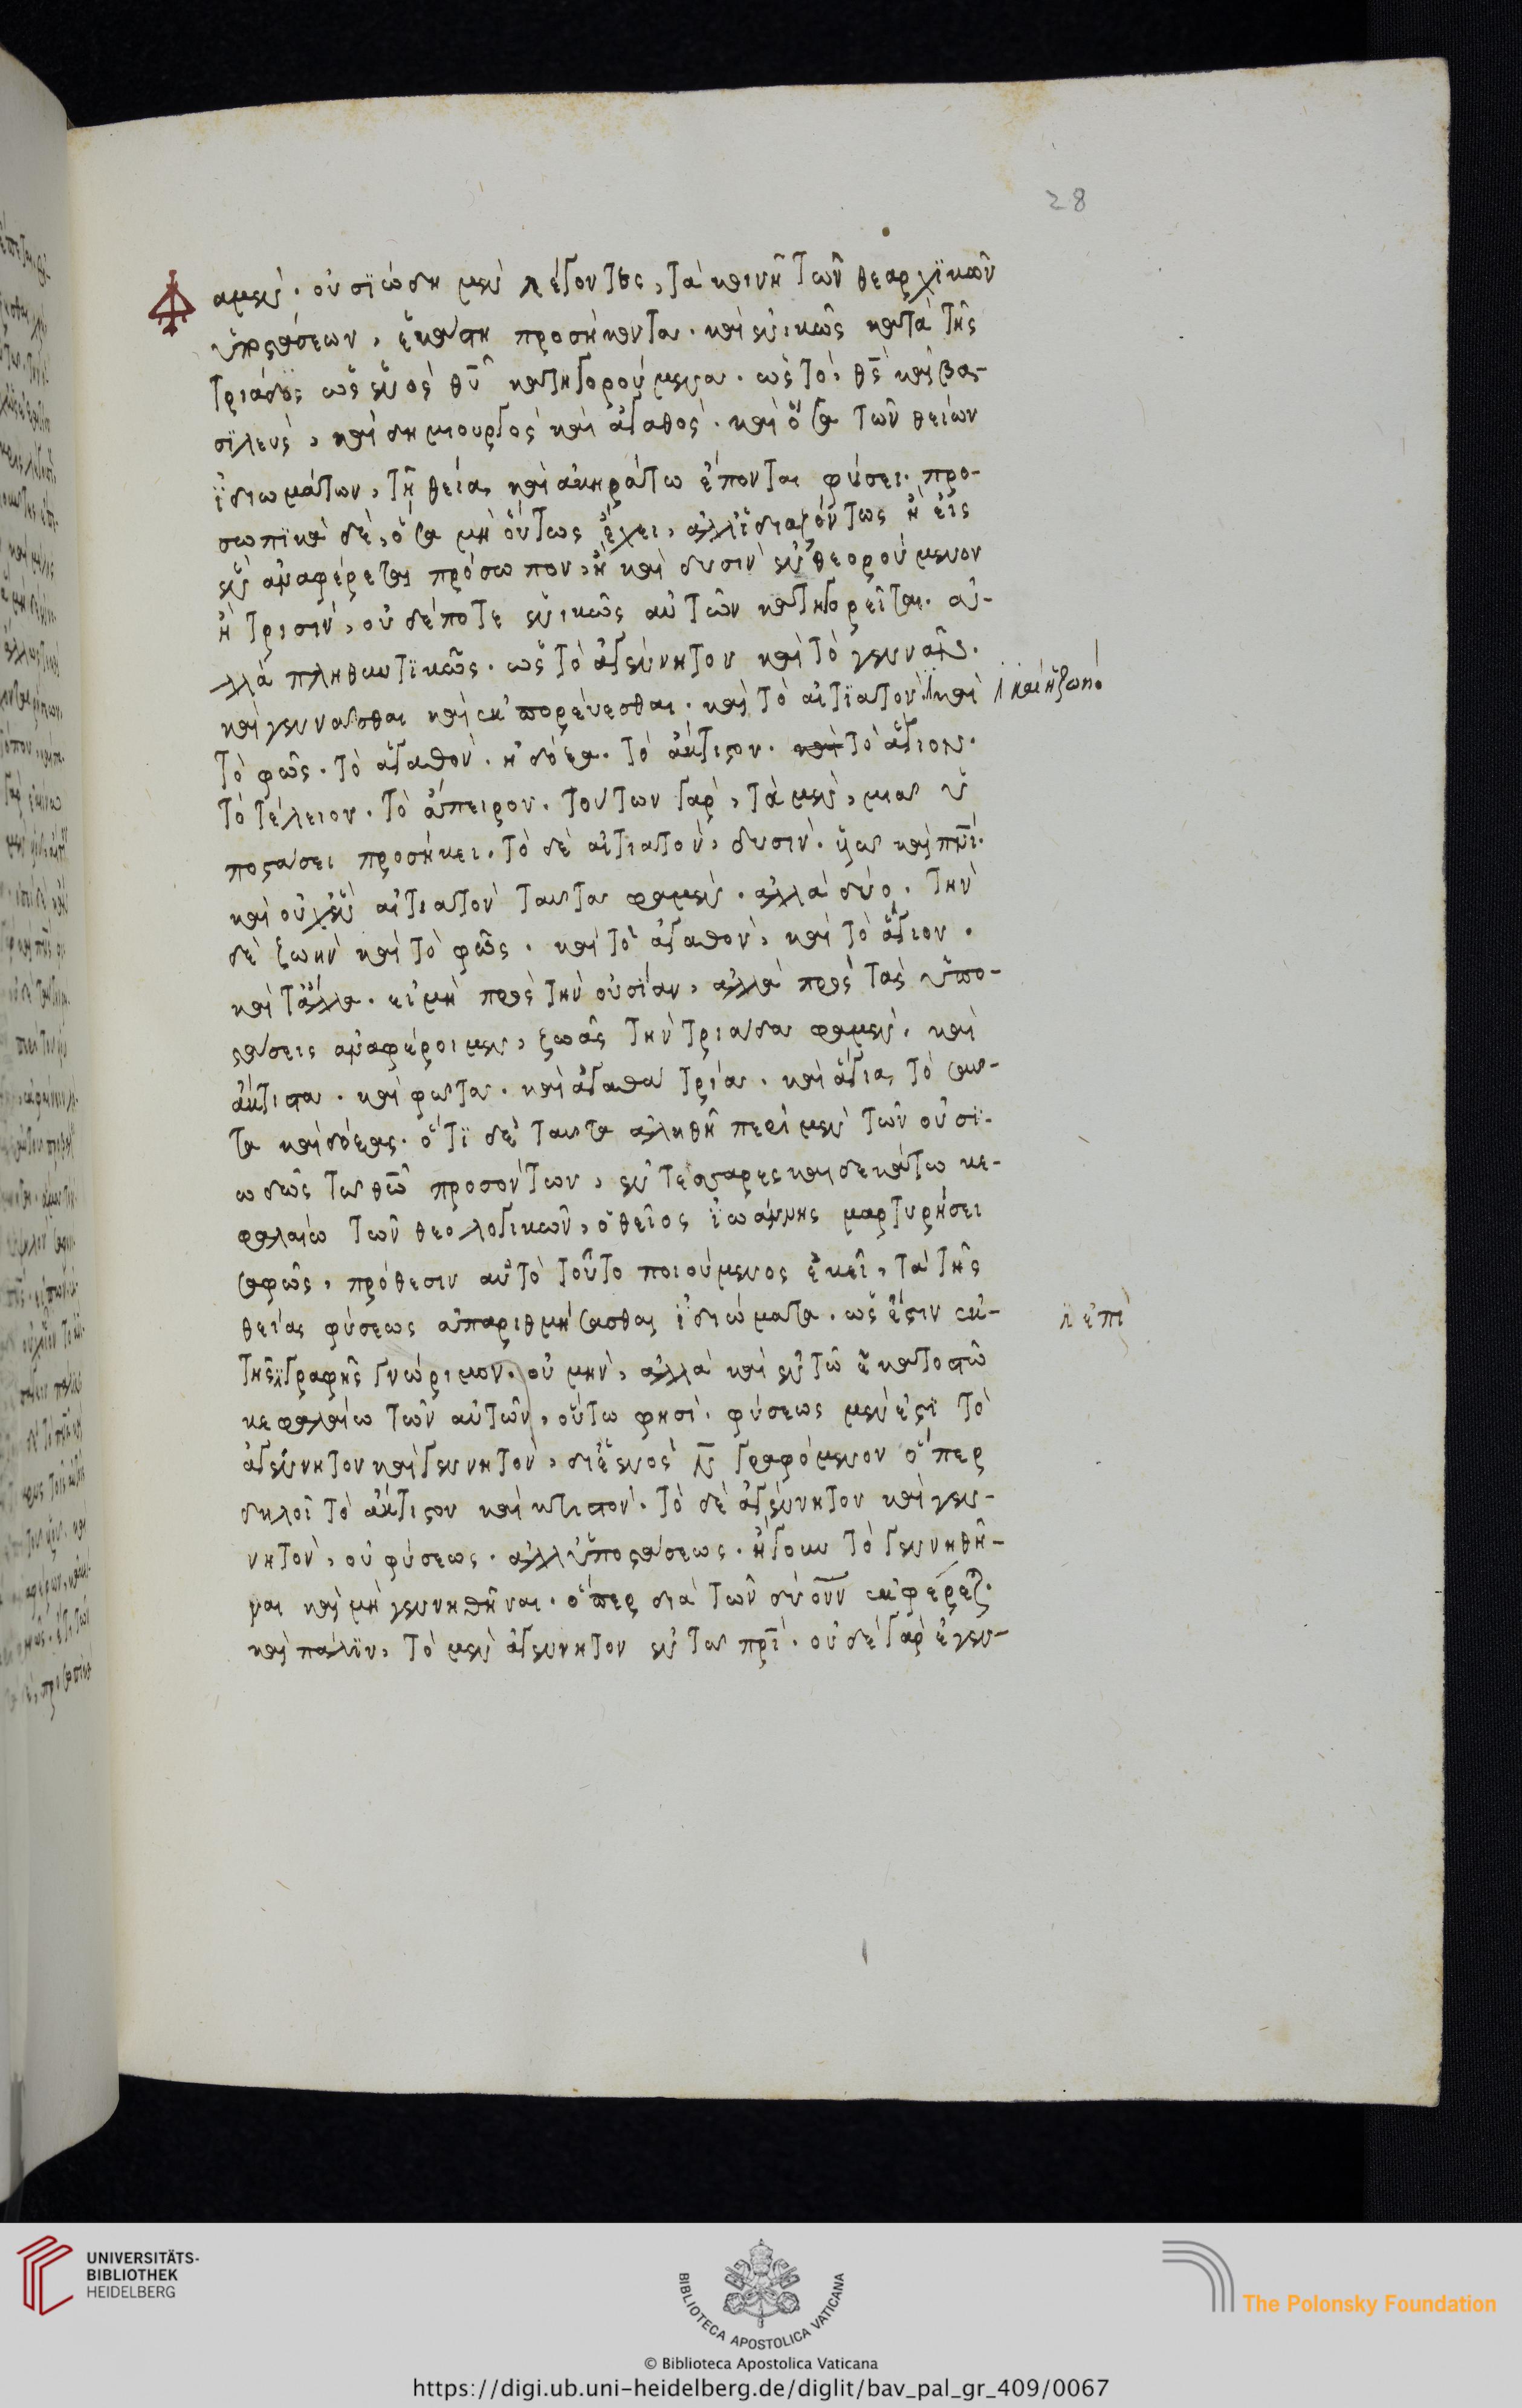 28
Φαμεν· οὐσϊώδη μεν λέγοντες, τὰ κοινῆ τῶν θεαρχϊκῶν
ὑποστάσεων, ἑκάστη προσήκοντα· καὶ ἑνικῶς κατὰ τῆς
τριάδος ὡς ἑνὸς θῦ κατηγορούμενα· ὡς τὸ, θς καὶ βα-
σϊλεὺς, καὶ δημιουργὸς καὶ ἀγαθὸς· καὶ ὅσα τῶν θείων
ἰδιωμάτων, τῇ θεία, καὶ ἀκηράτω ἕπονται φύσει· προ-
σωπϊκὰ δὲ, ὅσα μὴ οὕτως ἔχει, ἀλλ' ϊδιαζόντως ἢ εἰς
ἓν ἀναφέρεται πρόσωπον, ἢ καὶ δυσὶν ἐνθεορούμενον
ἢ τρισὶν, οὐδέποτε ἑνικῶς αὐτῶν κατηγορεῖται· ἀ-
λλὰ πληθυντϊκῶς· ὡς τὸ ἀγέννητον καὶ τὸ γεννᾶν·
καὶ γεννᾶσθαι καὶ ἐκπορεύεσθαι· καὶ τὸ αἰτϊατὸν καὶ
καὶ ἡ ζωὴ
τὸ φῶς· τὸ ἀγαθὸν· ἡ δόξα· τὸ ἄκτιστον· καὶ τὸ ἅγιον·
τὸ τέλειον· τὸ ἄπειρον· τούτων γὰρ, τὰ μὲν, μιᾶ ὑ
ποστάσει προσήκει· τὸ δὲ αἰτιατὸν, δυσὶν· ὑῶ καὶ πνι·
καὶ οὐχ' ἓν αἰτιατὸν ταῦτα φαμεν· ἀλλὰ δύο· τὴν
δὲ ζωὴν καὶ τὸ φῶς· καὶ τὸ ἀγαθὸν, καὶ τὸ ἅγιον·
καὶ τἄλλα· εἰ μὴ πρὸς τὴν οὐσϊαν, ἀλλὰ πρὸς τὰς ὑπο-
στάσεις ἀναφέροιμεν, ζωὰς τὴν τριάδα φαμεν· καὶ
ἄκτιστα· καὶ φῶτα· καὶ ἀγαθὰ τρία· καὶ ἅγια, τὸσαῦ-
τα καὶ δόξας· ὅτϊ δὲ ταῦτα ἀληθῆ περὶ μὲν τῶν οὐσϊ-
ωδῶς τῶ θῶ προσόντων, ἐν τεσσαρεσκαιδεκάτω κε-
φαλαίω τῶν θεολογικῶν, ὁ θεῖος ϊωάννης μαρτυρήσει
σαφῶς, πρόθεσιν αὐτὸ τοῦτο ποιούμενος ἐκεῖ, τὰ τῆς
θείας φύσεως ἀπαριθμήσασθαι ϊδιώματα· ὡς ἔστιν ἐκ
ἐπι
τῆς γραφῆς γνώριμον· οὐ μὴν, ἀλλὰ καὶ ἐν τῶ ἑκατοστῶ
κεφαλαίω τῶν αὐτῶν, οὕτω φησὶ· φύσεως μὲν ἐστϊ τὸ
ἀγένητον καὶ γενητὸν, δι' ἑνὸς ν γραφόμενον ὅπερ
δηλοῖ τὸ ἄκτιστον καὶ κτιστὸν· τὸ δὲ ἀγέννητον καὶ γεν-
νητὸν, οὐ φύσεως· ἀλλ' ὑποστάσεως· ἤγουν τὸ γεννηθῆ-
ναι καὶ μὴ γεννηθῆναι· ὅπερ διὰ τῶν δύο νν ἐκφέρετ·
καὶ πάλϊν, τὸ μὲν ἀγέννητον ἐν τῶ πρι· οὐδὲ γὰρ ἐγεν-
UNIVERSITÄTS-
BIBLIOTHEK
HEIDELBERG
BIBLIOTECA APOSTOLICA VATICANA
The Polonsky Foundation
© Biblioteca Apostolica Vaticana
https://digi.ub.uni-heidelberg.de/diglit/bav_pal_gr_409/0067